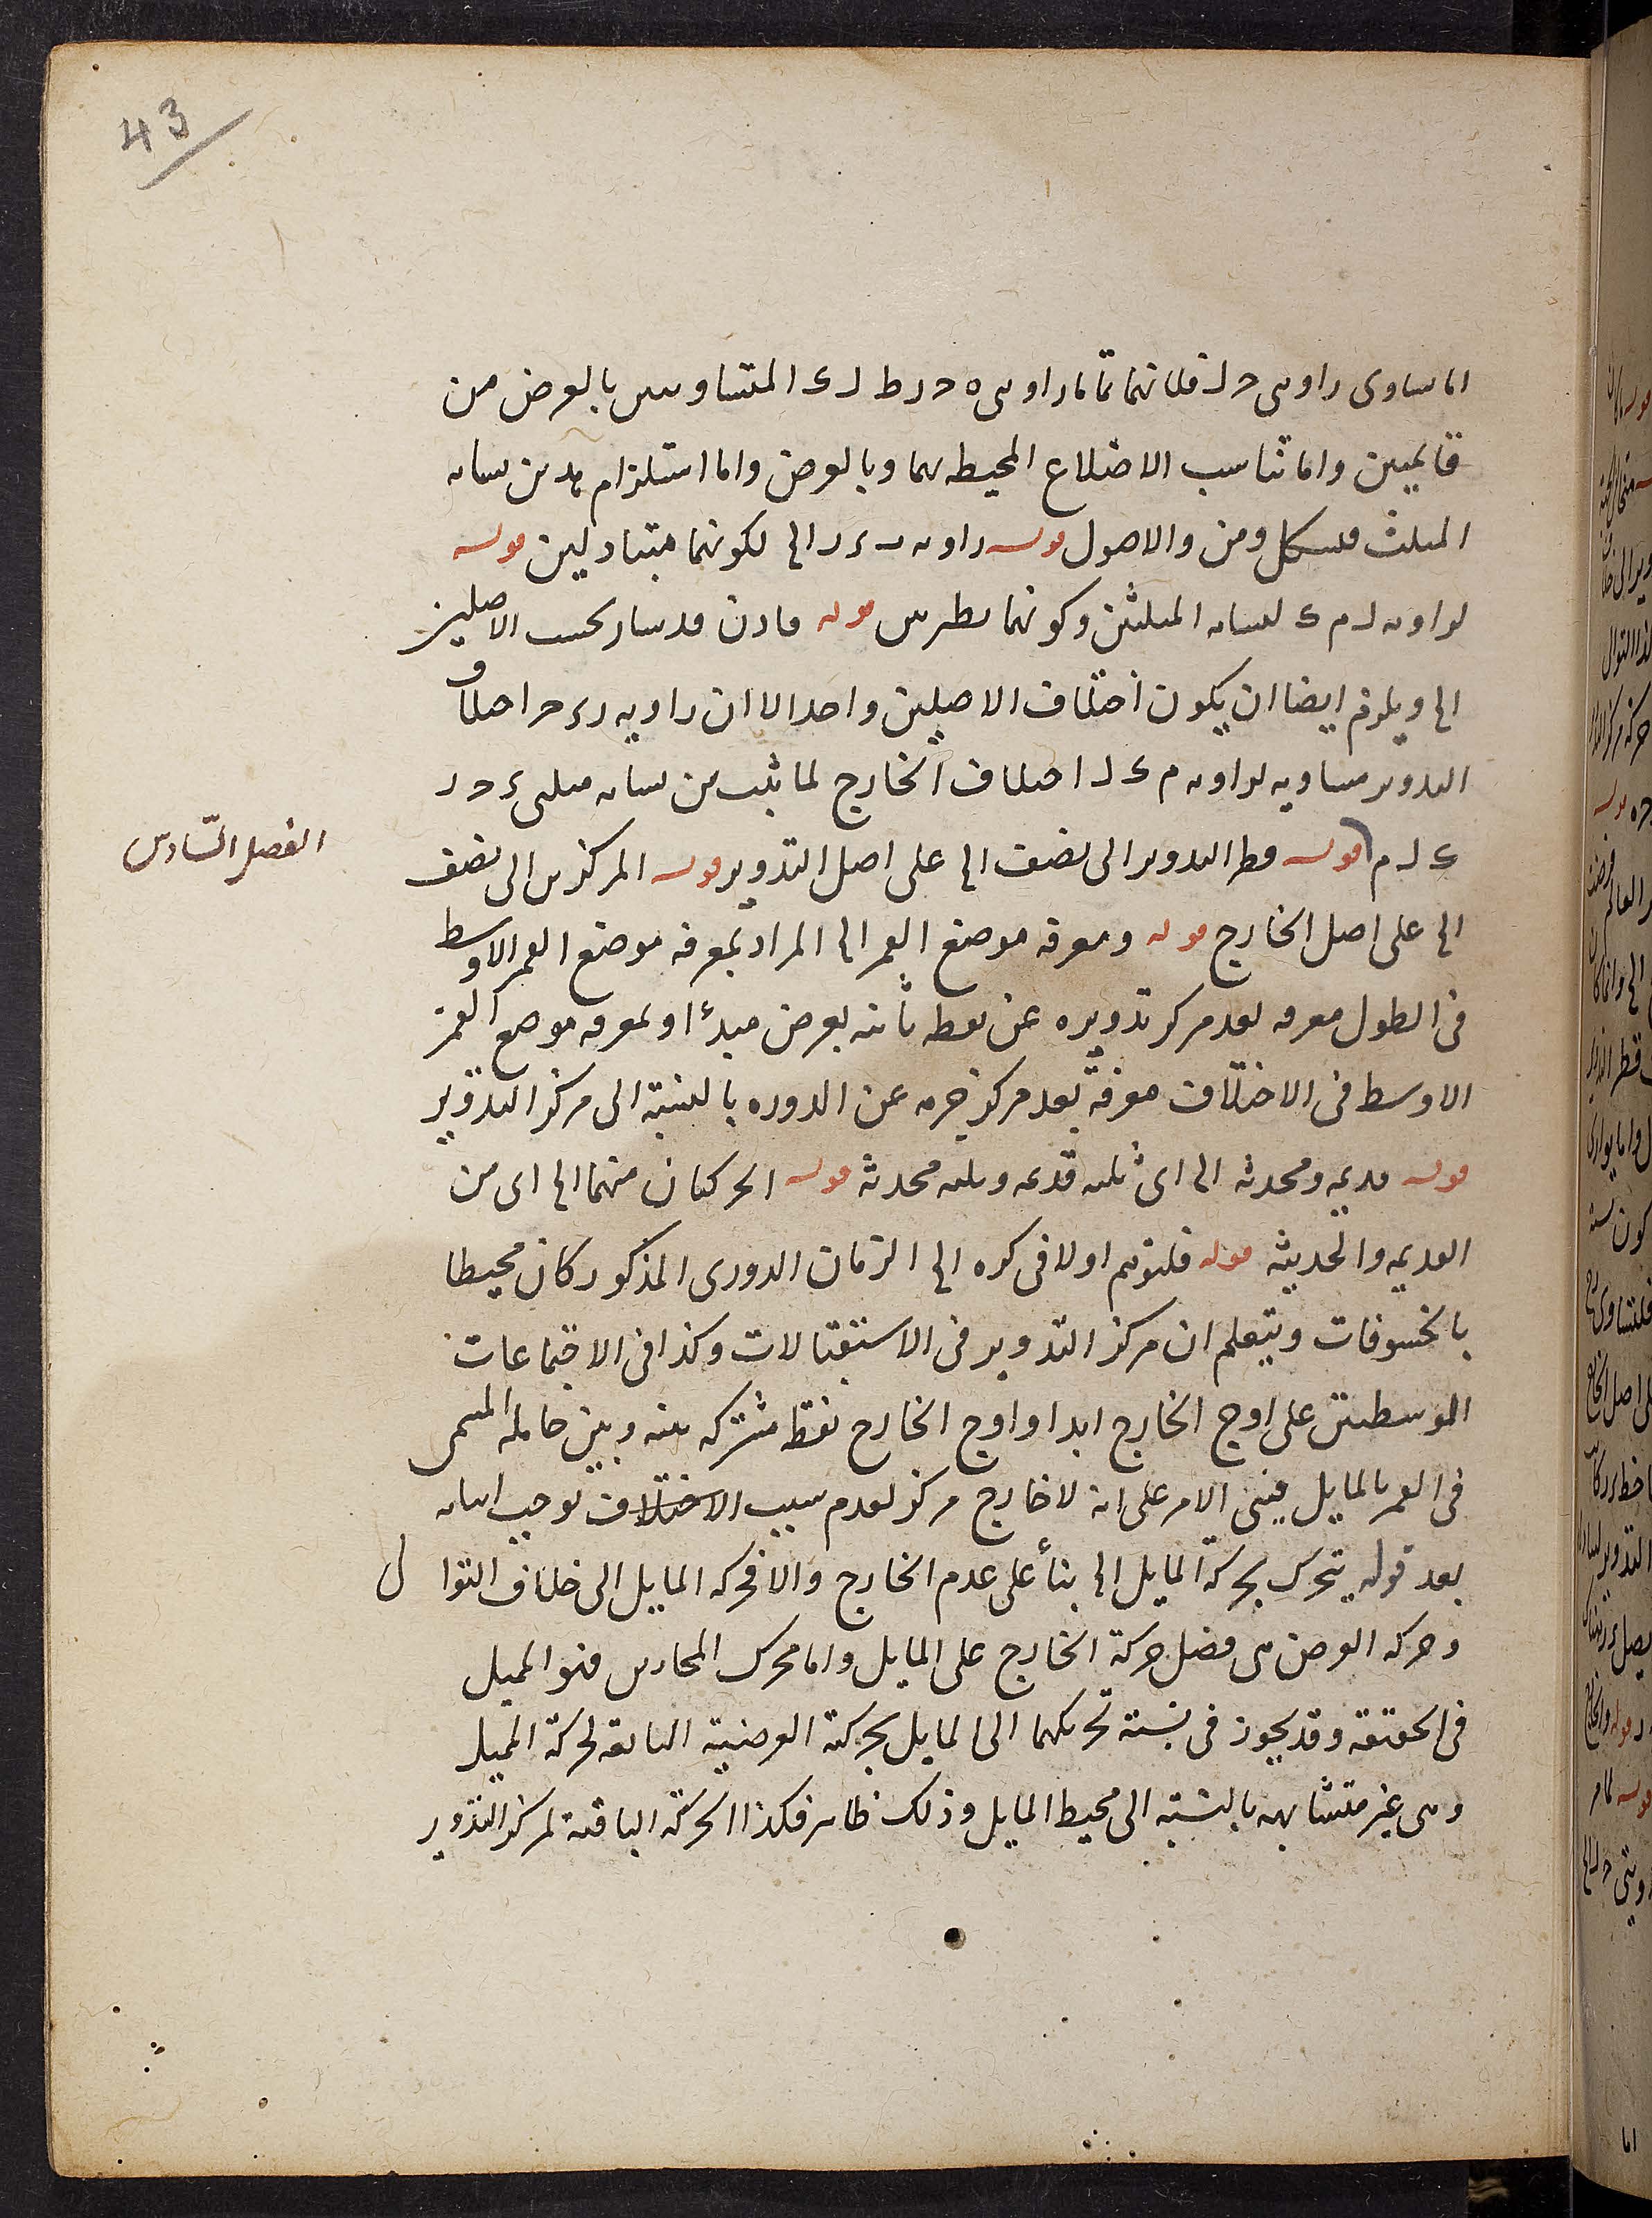 43
اما تساوى زاويتى ح د فلانهما تمامازاويتى ه ح ر ط ل ك المتساويتين بالفرض من
قايمتين واما تناسب الاضلاع المحيطه بهما وبالفرض واما استلزام هذين تشابه
المثلث فبشكل و من و الاصول قوله زاويه الخ لكونهما متبادلين قوله
لزاويه ل م ك لتشابه المثلثين وكونهما نظيرتين قوله فاذن قد صار بحسب الاصلين
الخ ويلزم ايضا ان يكون اختلاف الاصلين واحدا لان زاويه ر ء ح اختلاف
التدوير مساويه لزاويه م ك ل اختلاف الخارج لما ثبت من تشابه مثلثى ء ح ر
ك ل م قوله قطر التدوير الى نصف الخ على اصل التدوير قوله المركزين الى نصف
الفصل السّادس
الخ على اصل الخارج قوله ومعرفه موضع القمر الخ المراد بمعرفه موضع القمر الاوسط
فى الطول معرفه بعد مركز تدويره عن نقطه ثابته بفرض مبدءًا وبمعرفه موضع القمر
الاوسط فى الاختلاف معرفة بعد مركز جرمه عن الذروه بالنسبة الى مركز التدوير
قوله قديمه ومحدثه الخ اى ثلثه قديمه وثلثه محدثه قوله الحركتان منهما الخ اى من
القديمه والحديثه قوله فلنتوهم اولا فى كره الخ الزمان الدورى المذكور كان محيطا
بالخسوفات وبتعلم ان مركز التدوير فى الاستقبالات وكذا فى الاجتماعات
الوسطيتين على اوج الخارج ابدا واوج الخارج نقطه مشتركه بينه وبين حامله المسمى
فى القمر بالمايل فبنى الامر على انه لا خارج مركز لعدم سبب الاختلاف يوجب اثباته
بعد قوله يتحرك بحركة المايل الخ بناءً على عدم الخارج والا فحركه المايل الى خلاف التوالى
وحركه العرض هى فضل حركة الخارج على المايل واما محرك المحاذين فهو المميل
فى الحقيقه وقد يجوز فى نسبة تحريكهما الى المايل بحركته العرضية التابعه لحركة المميل
وهى غير متشابهه بالنسبه الى محيط المايل وذلك ظاهر فكذا الحركة الباقية لمركز التدوير